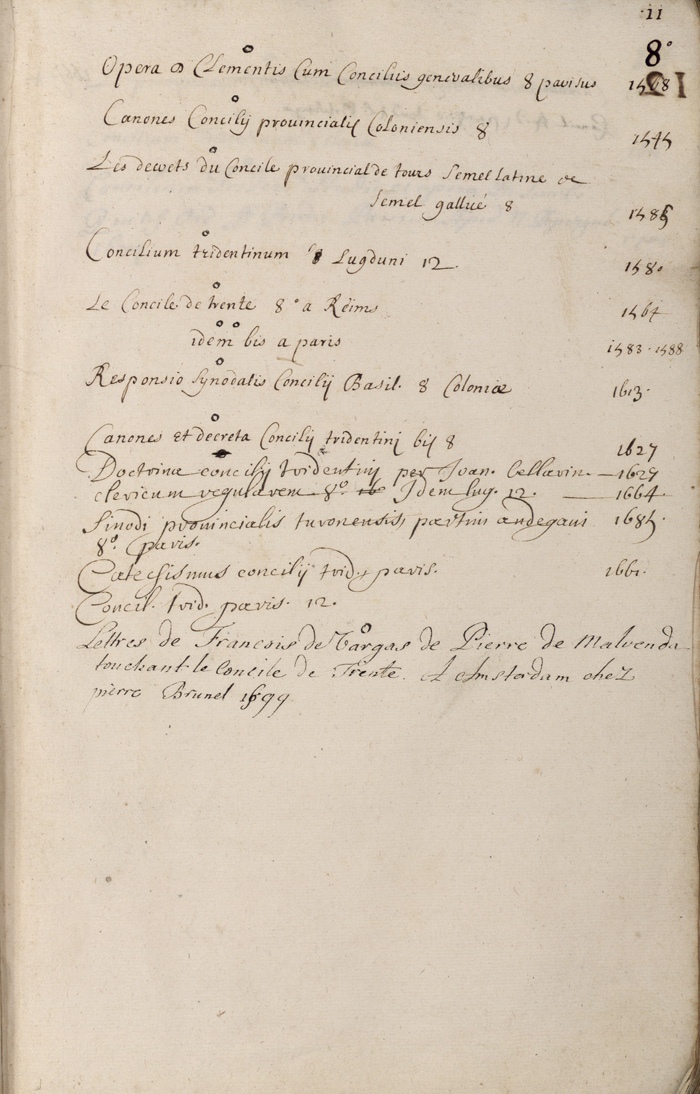 11
8°
Opera D Clementis Cum Conciliis generalibus 8 parisiis 1568
Canones Concilij prouincialis Coloniensis 8 1545
Les decrets du Concile prouincial de tours semel latine &
semel gallicé 8 1585
Concilium tridentinum Lugduni 12 1580
Le Concile de trente 8° a Reims 1564
idem bis a paris 1583 · 1588
Responsio synodalis Concilij Basil. 8 Coloniæ 1613
Canones et decreta Concilij tridentinj bis 8 1627
Doctrinæ concilij tridentinj per Joan. Bellarin. — 1629
clericum regularem 8° Idem lug. 12. — 1664
Sinodi prouincialis turonensis partim andegaui 1685
8°. paris.
Catechismus concilij trid. paris. 1661.
Concil. trid. paris. 12.
Lettres de Francois de Vargas de Pierre de Malvenda
touchant le Concile de Trente. A Amsterdam chez
pierre Brunel 1699